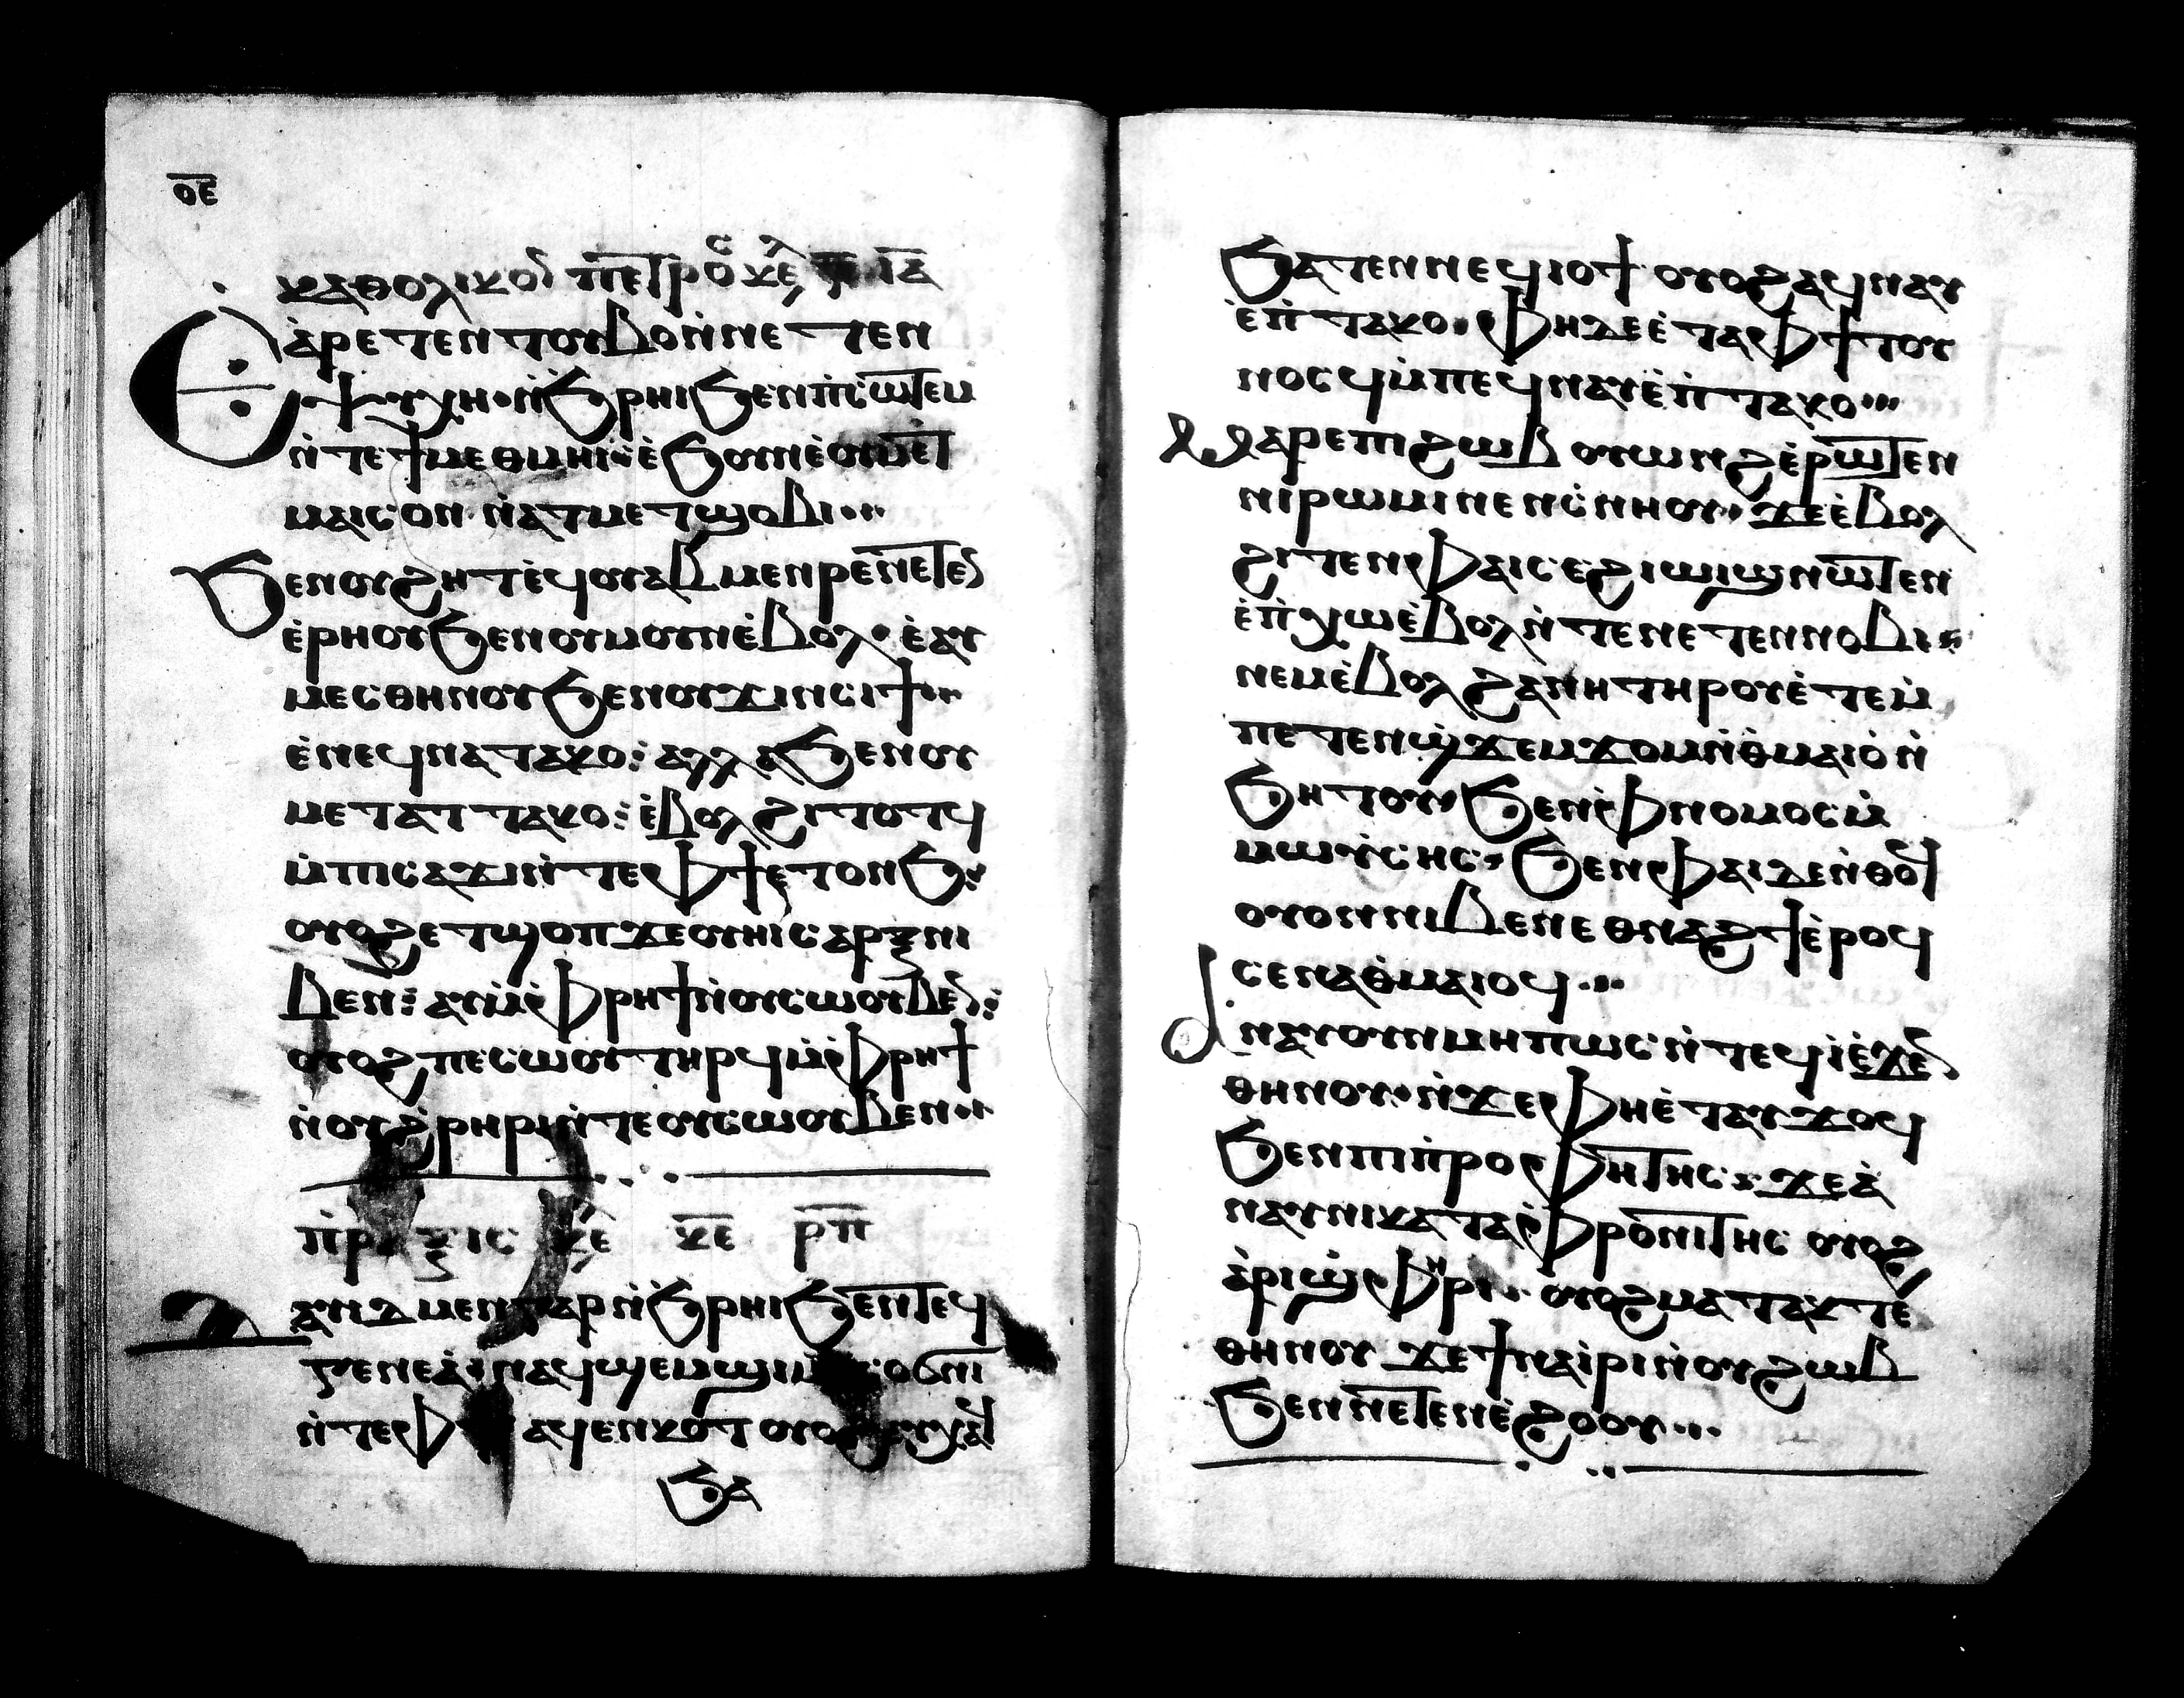 ⲟ̅ⲉ̅
ⲕⲁⲑⲟⲗⲓⲕⲟⲛ ⲡⲉⲧⲣⲟⲥ ⲕⲉ ⲓ̅ⲁ̅
Ⲉⲁ̀ⲣⲉⲧⲉⲛⲧⲟⲩⲃⲟ ⲛ̀ⲛⲉⲧⲉⲛ
ⲯⲩⲭⲏ· ⲛ̀ϧⲣⲏⲓ ϧⲉⲛ ⲡ̀ⲥⲱⲧⲉⲙ
ⲛ̀ⲧⲉ ϯⲙⲉⲑⲙⲏⲓ· ⲉ̀ϧⲟⲩⲛ ⲉ̀ⲟⲩⲙⲉⲧ
ⲙⲁⲓⲥⲟⲛ ⲛ̀ⲁⲧⲙⲉⲧϣⲟⲃⲓ...
ϧⲉⲛ ⲟⲩϩⲏⲧ ⲉ̀ϥⲟⲩⲁⲃ ⲙⲉⲛⲣⲉ ⲛⲉⲧⲉⲛ
ⲉ̀ⲣⲏⲟⲩ ϧⲉⲛ ⲟⲩⲙⲟⲩⲛ ⲉ̀ⲃⲟⲗ· ⲉ̀ⲁⲩ
ⲙⲉⲥ ⲑⲏⲛⲟⲩ ϧⲉⲛ ⲟⲩϫⲓⲛⲥⲓϯ ⲁⲛ
ⲉ̀ⲛⲉϥⲛⲁⲧⲁⲕⲟ: ⲁⲗⲗⲁ ϧⲉⲛ ⲟⲩ
ⲙⲉⲧⲁⲧⲧⲁⲕⲟ: ⲉ̀ⲃⲟⲗ ϩⲓⲧⲟⲧϥ
ⲙ̀ⲡⲓⲥⲁϫⲓ ⲛ̀ⲧⲉ ⲫϯ ⲉⲧⲟⲛϧ:
ⲟⲩⲟϩ ⲉⲧϣⲟⲡ ϫⲉ ⲟⲩⲏⲓ ⲥⲁⲣⲝ ⲛⲓ
ⲃⲉⲛ: ⲁⲩ ⲙ̀ⲫⲣⲏϯ ⲛ̀ⲟⲩⲥⲱⲟⲩⲃⲉⲛ:
ⲟⲩⲟϩ ⲡⲉⲥⲱⲟⲩ ⲧⲏⲣϥ ⲙ̀ⲫⲣⲏϯ
ⲛ̀ⲟⲩϩ̀ⲣⲏⲣⲓ ⲛ̀ⲧⲉ ⲟⲩⲥⲱⲟⲩⲃⲉⲛ...
ⲡ̀ⲣⲁⲝⲓⲥ ⲕⲉ ⲕ̅ⲉ̅ ⲣ̅ⲡ̅
Ⲇⲁⲩⲓⲇ ⲙⲉⲛ ⲅⲁⲣ ⲛ̀ϧⲣⲏⲓ ϧⲉⲛ ⲧⲉϥ
ⲅⲉⲛⲉⲁ̀· ⲛⲁϥϣⲉⲙϣⲓ ⲙ̀ⲡⲥⲟϭⲛⲓ
ⲛ̀ⲧⲉ ⲫϯ ⲁϥⲉⲛⲕⲟⲧ ⲟⲩⲟϩ ⲁⲩⲭⲁϥ
ϧⲁ
ϧⲁⲧⲉⲛ ⲛⲉϥⲓⲟϯ ⲟⲩⲟϩ ⲁϥⲛⲁⲩ
ⲉ̀ⲡ̀ⲧⲁⲕⲟ· ⲫⲏ ⲇⲉ ⲉ̀ⲧⲁ ⲫϯ ⲧⲟⲩ
ⲛⲟⲥϥ ⲙ̀ⲡⲉϥⲛⲁⲩ ⲉ̀ⲡ̀ⲧⲁⲕⲟ...
Ⲙⲁⲣⲉ ⲡⲓϩⲱⲃ ⲟⲩⲱⲛϩ ⲉ̀ⲣⲱⲧⲉⲛ
ⲛⲓⲣⲱⲙⲓ ⲛⲉⲛⲥ̀ⲛⲏⲟⲩ· ϫⲉ ⲉ̀ⲃⲟⲗ
ϩⲓⲧⲉⲛ ⲫⲁⲓ ⲥⲉϩⲓⲱⲓϣ ⲛⲱⲧⲉⲛ
ⲉ̀ⲡ̀ⲭⲱ ⲉ̀ⲃⲟⲗ ⲛ̀ⲧⲉ ⲛⲉⲧⲉⲛⲛⲟⲃⲓ:
ⲛⲉⲙ ⲉ̀ⲃⲟⲗ ϩⲁ ⲛⲏ ⲧⲏⲣⲟⲩ ⲉ̀ⲧⲉ ⲙ̀
ⲡⲉⲧⲉⲛϣ̀ϫⲉⲙϫⲟⲙ ⲛ̀ⲑ̀ⲙⲁⲓⲟ̀ ⲛ̀
ϧⲏⲧⲟⲩ ϧⲉⲛ ⲫⲛⲟⲙⲟⲥ ⲙ̀
ⲙⲱⲩⲥⲏⲥ· ϧⲉⲛ ⲫⲁⲓ ⲇⲉ ⲛ̀ⲑⲟϥ
ⲟⲩⲟⲛ ⲛⲓⲃⲉⲛ ⲉⲑⲛⲁϩϯ ⲉ̀ⲣⲟϥ
ⲥⲉⲛⲁⲑ̀ⲙⲁⲓⲟϥ...
Ⲁⲛⲁⲩ ⲟⲩⲛ ⲙⲏⲡⲱⲥ ⲛ̀ⲧⲉϥⲓ̀ ⲉ̀ϫⲉⲛ
ⲑⲏⲛⲟⲩ· ⲛ̀ϫⲉ ⲫⲏ ⲉ̀ⲧⲁⲩϫⲟϥ
ϧⲉⲛ ⲡⲓⲡ̀ⲣⲟⲫⲏⲧⲏⲥ: ϫⲉ ⲁ̀
ⲛⲁⲩ ⲛⲓⲕⲁⲧⲁⲫⲣⲟⲛⲓⲧⲏⲥ ⲟⲩⲟϩ
ⲁ̀ⲣⲓϣ̀ⲫⲏⲣⲓ· ⲟⲩⲟϩ ⲙⲁⲧⲁⲕⲧⲉ
ⲑⲏⲛⲟⲩ ϫⲉ ϯⲛⲁⲓ̀ⲣⲓ ⲛ̀ⲟⲩϩⲱⲃ
ϧⲉⲛ ⲛⲉⲧⲉⲛⲉ̀ϩⲟⲟⲩ...